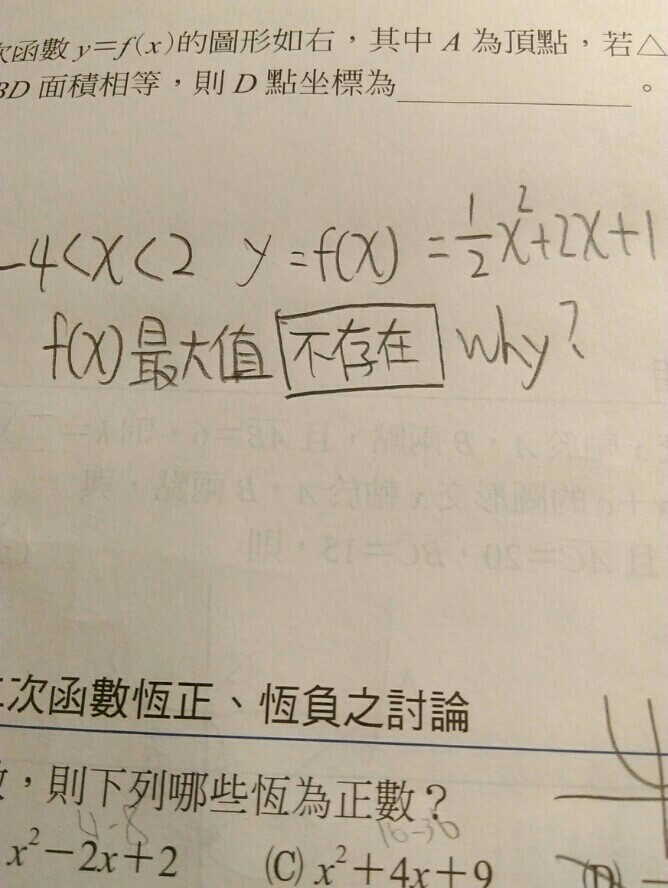 次函數 y=f(x)的圖形如右，其中 A 為頂點，若△
BD 面積相等，則 D 點坐標為__________。
-4<x<2 y=f(x) =1/2x²+2x+1
f(x)最大值 不存在 why?
二次函數恆正、恆負之討論
數，則下列哪些恆為正數？
4-8 16-36
x²-2x+2 (C) x²+4x+9 (D)